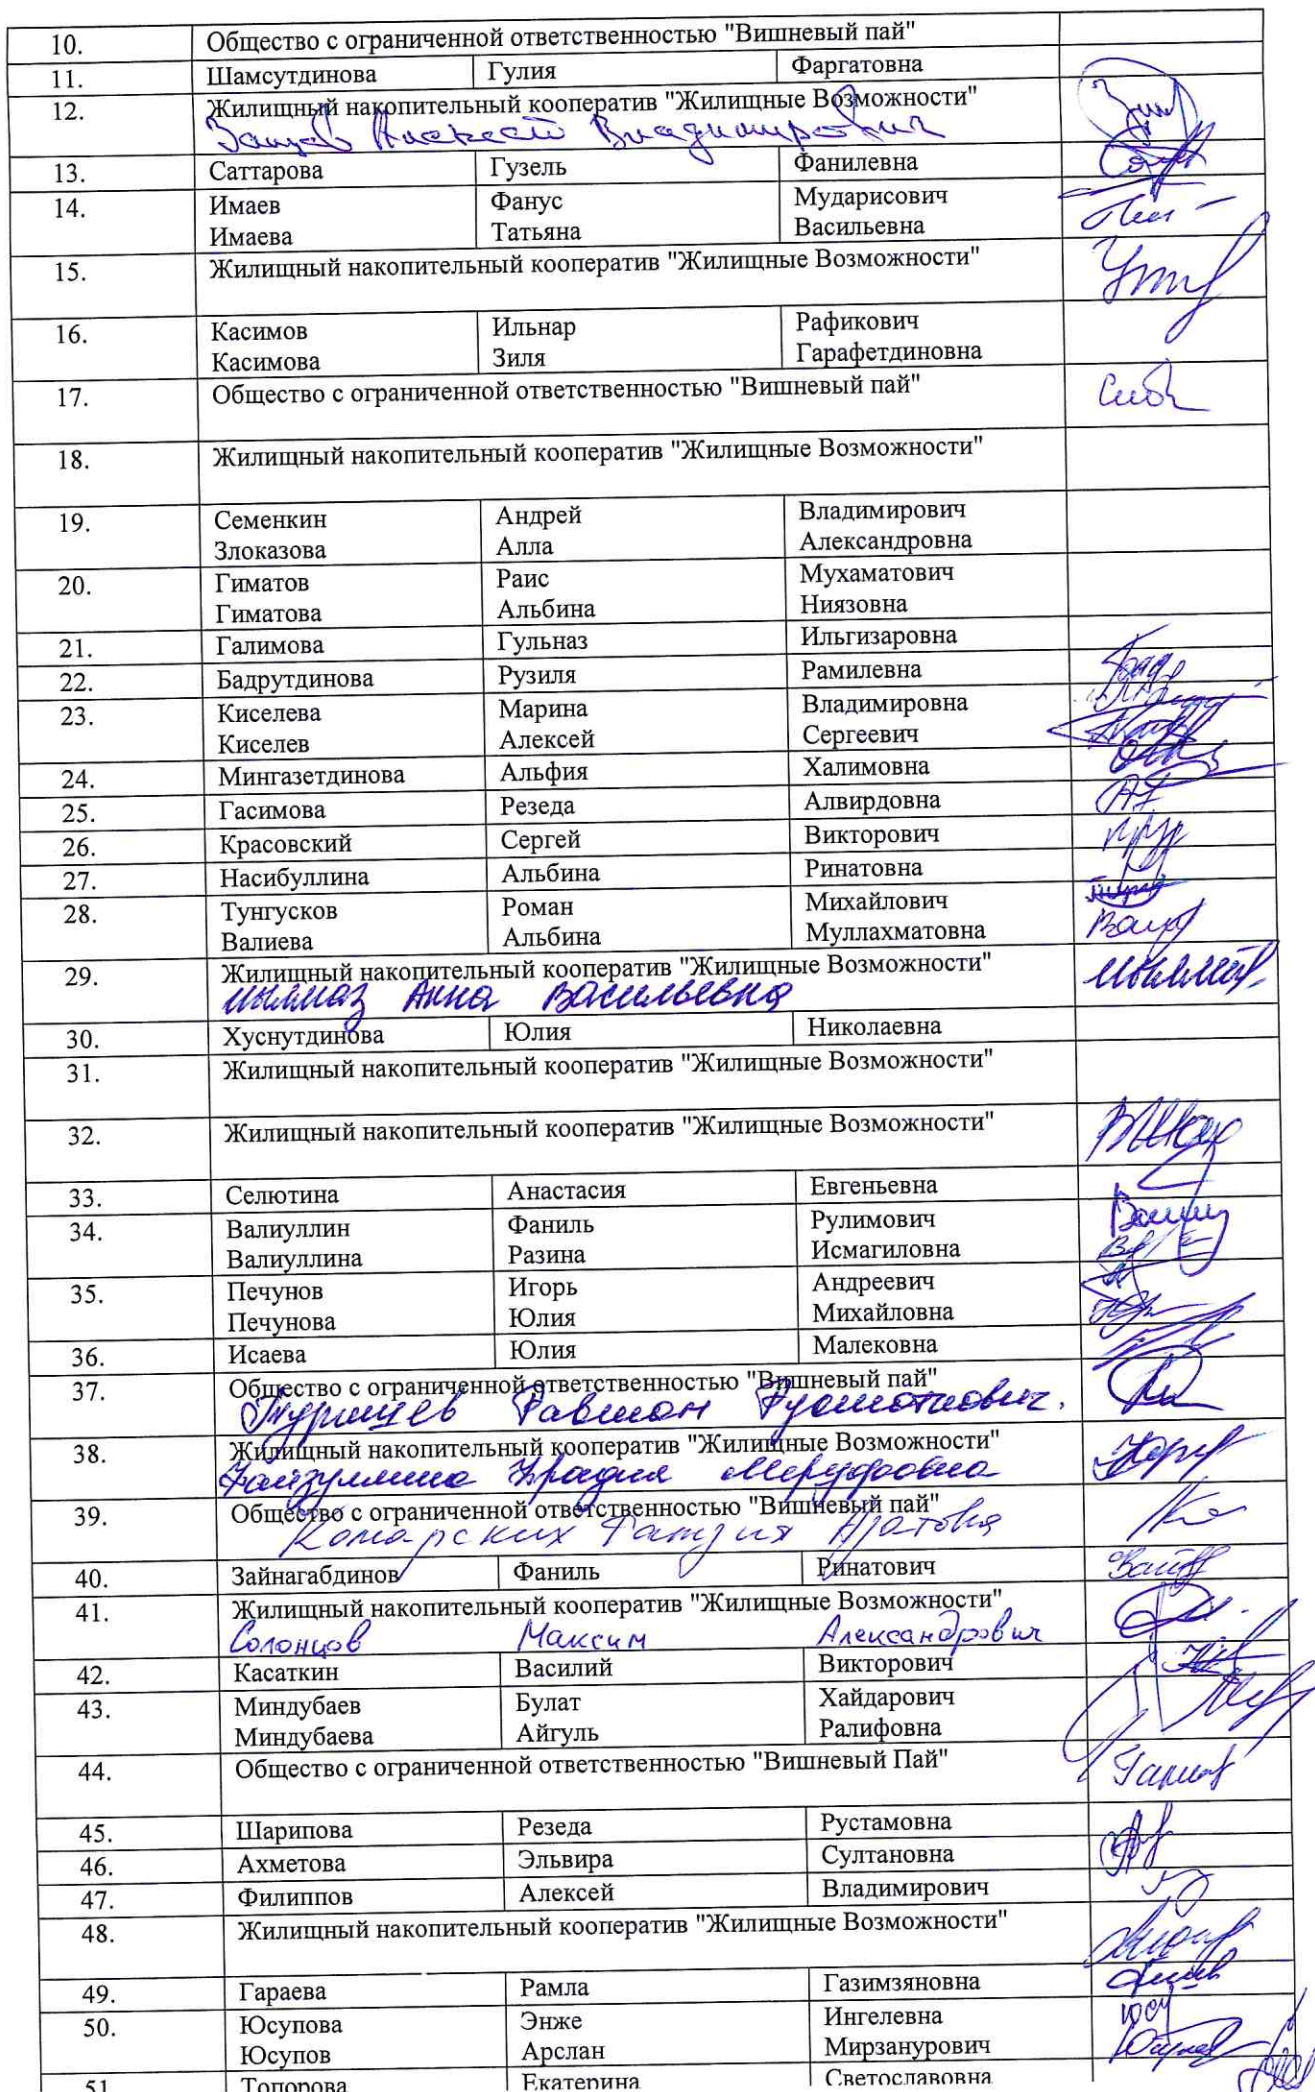 10. Общество с ограниченной ответственностью "Вишневый пай"
11. Шамсутдинова Гулия Фаргатовна
12. Жилищный накопительный кооператив "Жилищные Возможности"
Алексей Владимирович
13. Саттарова Гузель Фанилевна
14. Имаев Фанус Мударисович
Имаева Татьяна Васильевна
15. Жилищный накопительный кооператив "Жилищные Возможности"
16. Касимов Ильнар Рафикович
Касимова Зиля Гарафетдиновна
17. Общество с ограниченной ответственностью "Вишневый пай"
18. Жилищный накопительный кооператив "Жилищные Возможности"
19. Семенкин Андрей Владимирович
Злоказова Алла Александровна
20. Гиматов Раис Мухаматович
Гиматова Альбина Ниязовна
21. Галимова Гульназ Ильгизаровна
22. Бадрутдинова Рузиля Рамилевна
23. Киселева Марина Владимировна
Киселев Алексей Сергеевич
24. Мингазетдинова Альфия Халимовна
25. Гасимова Резеда Алвирдовна
26. Красовский Сергей Викторович
27. Насибуллина Альбина Ринатовна
28. Тунгусков Роман Михайлович
Валиева Альбина Муллахматовна
29. Жилищный накопительный кооператив "Жилищные Возможности"
Анна Васильевна
30. Хуснутдинова Юлия Николаевна
31. Жилищный накопительный кооператив "Жилищные Возможности"
32. Жилищный накопительный кооператив "Жилищные Возможности"
33. Селютина Анастасия Евгеньевна
34. Валиуллин Фаниль Рулимович
Валиуллина Разина Исмагиловна
35. Печунов Игорь Андреевич
Печунова Юлия Михайловна
36. Исаева Юлия Малековна
37. Общество с ограниченной ответственностью "Вишневый пай"
Равшан
38. Жилищный накопительный кооператив "Жилищные Возможности"
39. Общество с ограниченной ответственностью "Вишневый пай"
Комарских
40. Зайнагабдинов Фаниль Ринатович
41. Жилищный накопительный кооператив "Жилищные Возможности"
Солонцов Максим Александрович
42. Касаткин Василий Викторович
43. Миндубаев Булат Хайдарович
Миндубаева Айгуль Ралифовна
44. Общество с ограниченной ответственностью "Вишневый Пай"
45. Шарипова Резеда Рустамовна
46. Ахметова Эльвира Султановна
47. Филиппов Алексей Владимирович
48. Жилищный накопительный кооператив "Жилищные Возможности"
49. Гараева Рамла Газимзяновна
50. Юсупова Энже Ингелевна
Юсупов Арслан Мирзанурович
51 Топорова Екатерина Светославовна